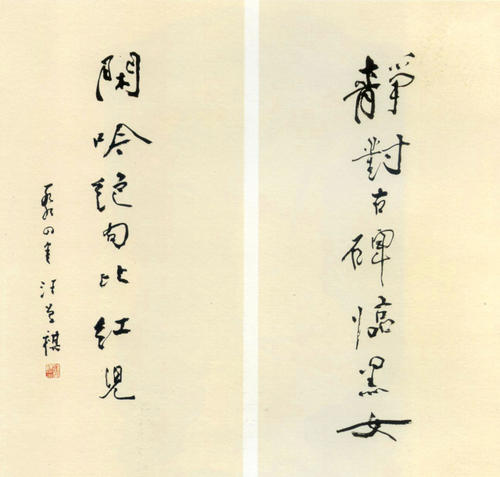 靜對古碑臨黑女
閑吟絕句比紅兒
一九八四年 汪曾祺